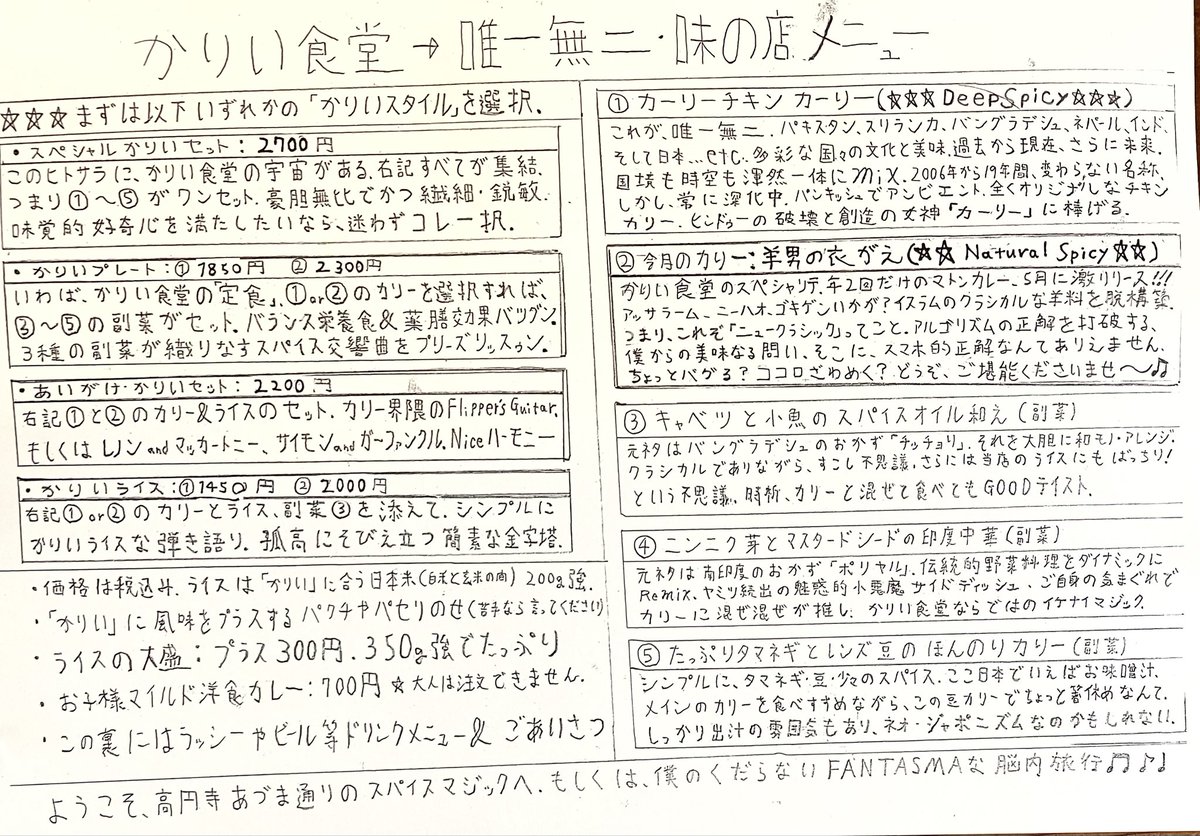 かりい食堂→唯一無二・味の店メニュー
☆☆☆まずは以下いずれかの「かりいスタイル」を選択.
・スペシャルかりいセット：2700円
このヒトサラに、かりい食堂の宇宙がある.右記すべてが集結.
つまり①〜⑤がワンセット.豪胆無比でかつ繊細・鋭敏.
味覚的好奇心を満たしたいなら、迷わずコレ一択.
・かりいプレート：①1850円 ②2300円
いわば、かりい食堂の「定食」、①or②のカリーを選択すれば、
③〜⑤の副菜がセット.バランス栄養食&薬膳効果バツグン.
3種の副菜が織りなすスパイス交響曲をプリーズリッスゥン.
・あいがけ・かりいセット：2200円
右記①と②のカリー&ライスのセット.カリー界隈のFlipper's Guitar.
もしくはレノンandマッカートニー、サイモンandガーファンクル.Niceハーモニー
・かりいライス：①1450円 ②2000円
右記①or②のカリーとライス、副菜③を添えて.シンプルに
かりいライスな弾き語り.孤高にそびえ立つ簡素な金字塔.
・価格は税込み.ライスは「かりい」に合う日本米(白米と玄米の両)200g強.
・「かりい」に風味をプラスするパクチやパセリのせ(苦手なら言ってください)
・ライスの大盛：プラス300円.350g強でたっぷり
・お子様マイルド洋食カレー：700円☆大人は注文できません.
・この裏にはラッシーやビール等ドリンクメニュー& ごあいさつ
①カーリーチキン カーリー(☆☆☆DeepSpicy☆☆☆)
これが、唯一無二.パキスタン、スリランカ、バングラデシュ、ネパール、インド、
そして日本...etc.多彩な国々の文化と美味.過去から現在、さらに未来.
国境も時空も渾然一体にmix.2006年から19年間、変わらない名称.
しかし、常に深化中.パンキッシュでアンビエント.全くオリジナルなチキン
カリー.ヒンドゥーの破壊と創造の女神「カーリー」に捧げる.
②今月のカリー：羊男の衣がえ(☆☆ Natural Spicy☆☆)
かりい食堂のスペシャリテ.年2回だけのマトンカレー、5月に激リリース!!!
アッサラーム、ニーハオ、ゴキゲンいかが？イスラムのクラシカルな羊料を脱構築.
つまり、これぞ「ニュークラシック」ってこと.アルゴリズムの正解を打破する、
僕からの美味なる問い.そこに、スマホ的正解なんてありえません.
ちょっとバグる？ココロざわめく？どうぞ、ご堪能くださいませ〜♫
③キャベツと小魚のスパイスオイル和え(副菜)
元ネタはバングラデシュのおかず「チッチョリ」.それを大胆に和モノ・アレンジ.
クラシカルでありながら、すこし不思議.さらには当店のライスにもばっちり!
という不思議.時折、カリーと混ぜて食べてもGOODテイスト.
④ニンニク芽とマスタードシードの印度中華(副菜)
元ネタは南印度のおかず「ポリヤル」.伝統的野菜料理をダイナミックに
Remix.ヤミツ続出の魅惑的小悪魔サイドディッシュ.ご自身の気まぐれで
カリーに混ぜ混ぜが推し.かりい食堂ならではのイケナイマジック.
⑤たっぷりタマネギとレンズ豆のほんのりカリー(副菜)
シンプルに、タマネギ・豆・少々のスパイス.ここ日本でいえばお味噌汁.
メインのカリーを食べすすめながら、この豆カリーでちょっと箸休めなんて.
しっかり出汁の雰囲気もあり、ネオ・ジャポニズムなのかもしれない.
ようこそ、高円寺あづま通りのスパイスマジックへ.もしくは、僕のくだらないFANTASMAな脳内旅行♫♪♩